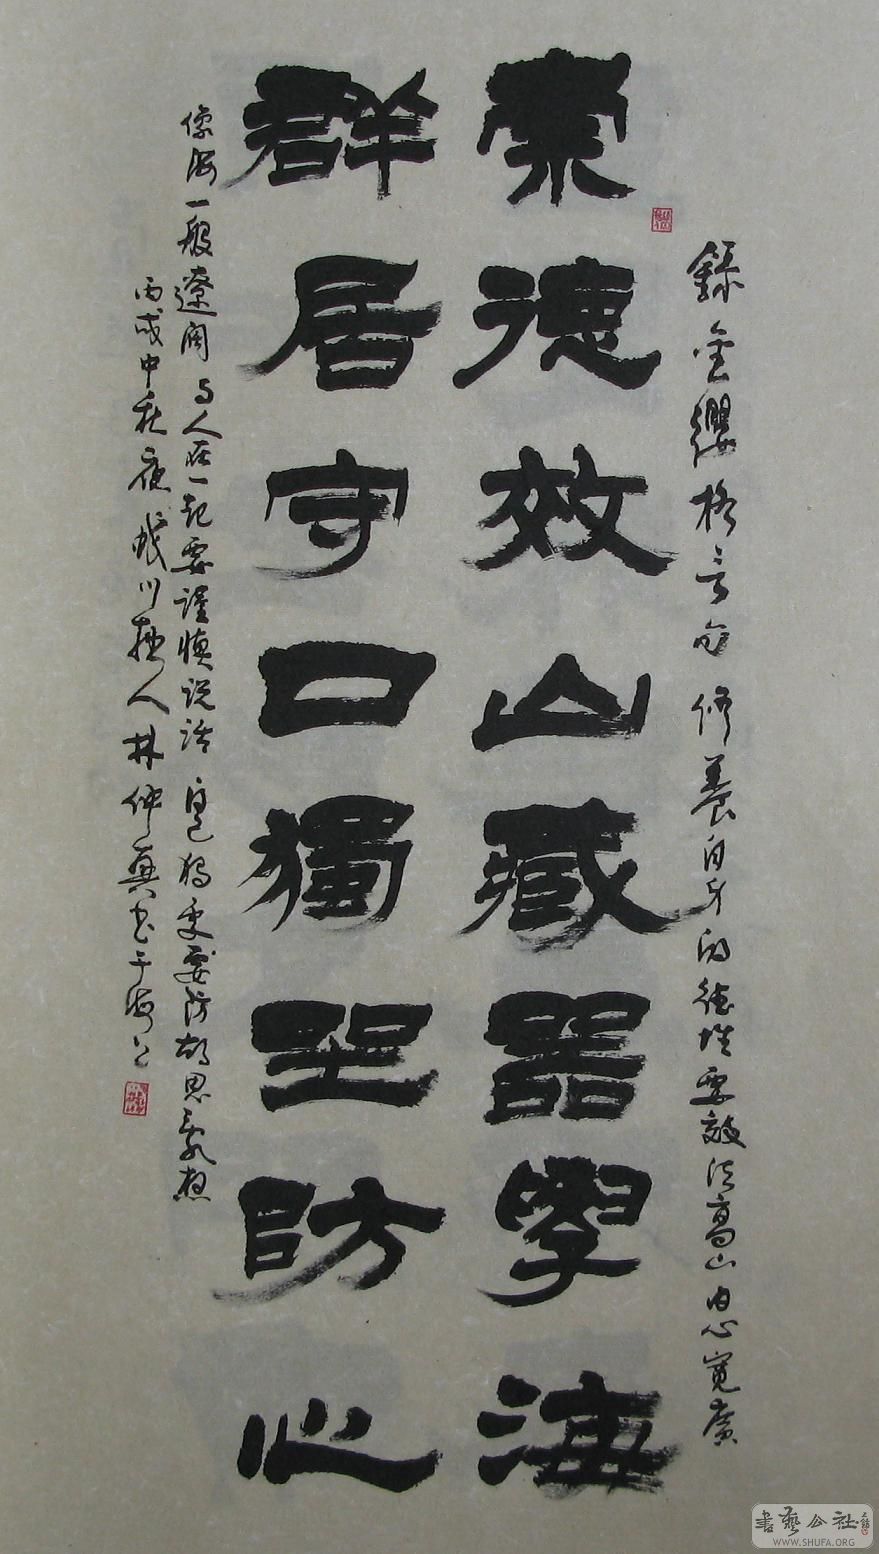 錄金纓格言句 修養自身的德性要效法高山 内心寬廣
崇德效山藏器學海
群居守口獨坐防心
像海一般遼闊 与人在一起要謹慎说话 自己獨处要防胡思乱想
丙戌中秋夜蛟川人林仲興书于海上
書藝公社
WWW.SHUFA.ORG